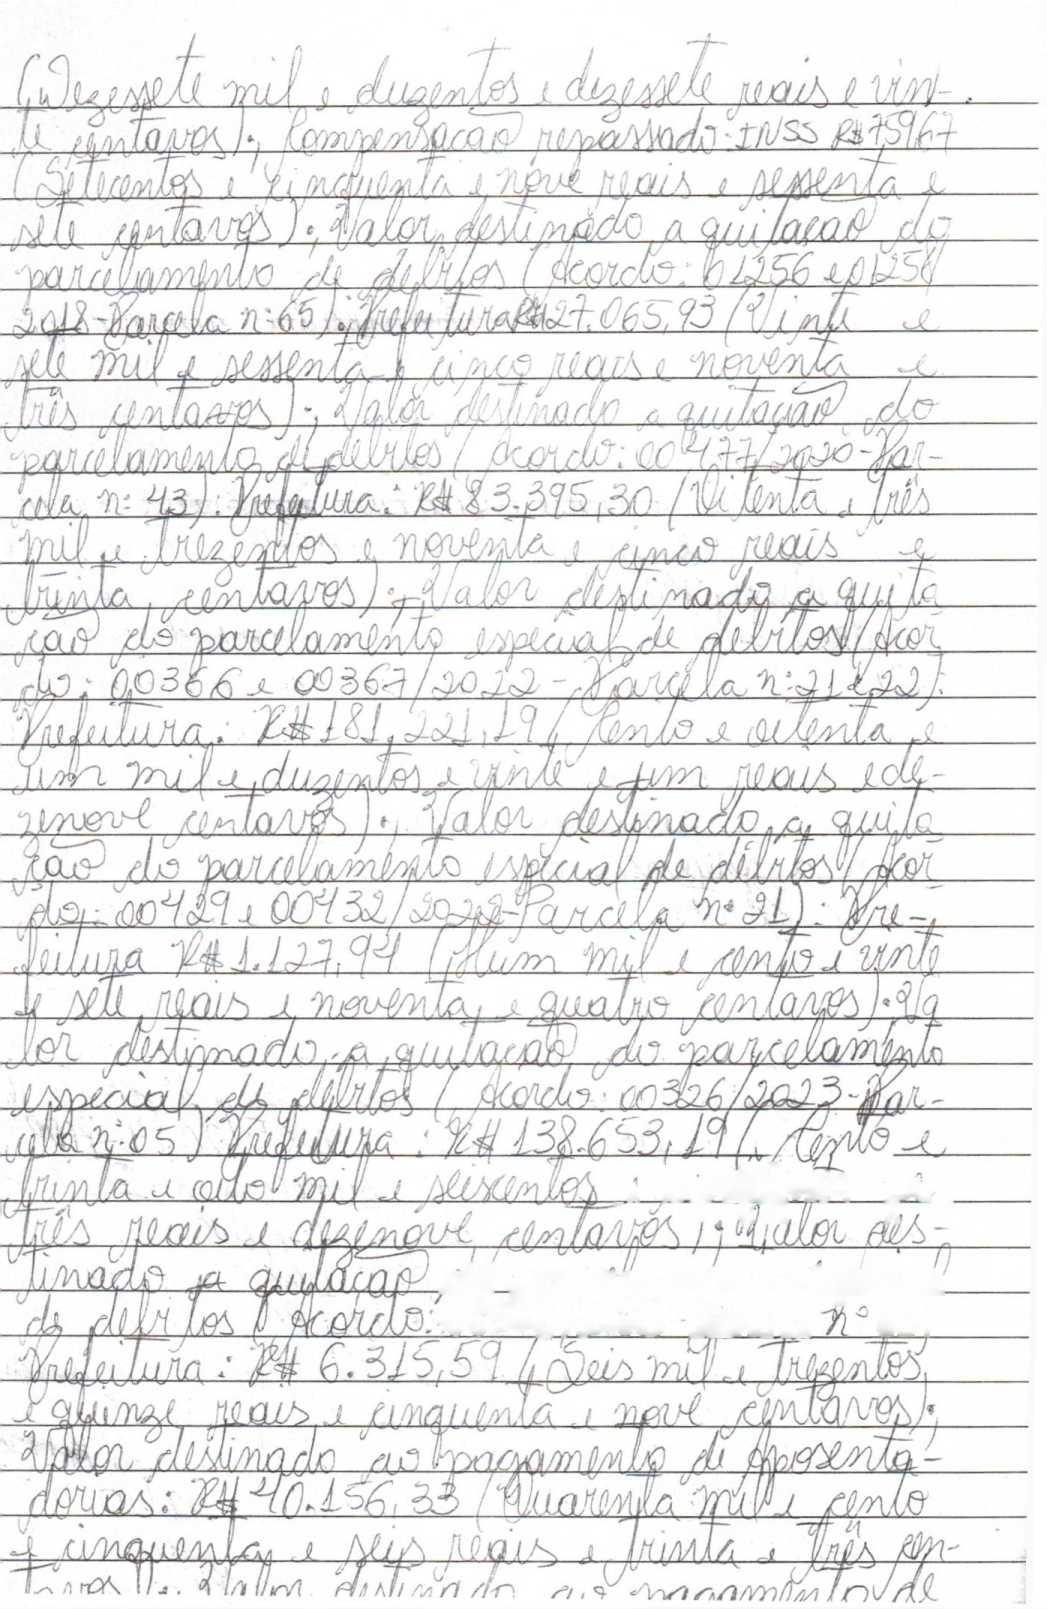 (Dezessete mil e duzentos e dezessete reais e vin-
te centavos); Compensação repassado: INSS R$ 759,67
(Setecentos e cinquenta e nove reais e sessenta e
sete centavos); Valor destinado a quitação do
parcelamento de débitos (Acordo: 01256 e 01258
2018-Parcela nº 65): Prefeitura R$ 27.065,93 (Vinte e
sete mil e sessenta e cinco reais e noventa e
três centavos); Valor destinado a quitação do
parcelamento de débitos (Acordo: 00477/2020-Par-
cela nº 43): Prefeitura: R$ 83.395,30 (Oitenta e três
mil e trezentos e noventa e cinco reais e
trinta centavos); Valor destinado a quita
ção do parcelamento especial de débitos (Acor
do: 00366 e 00367/2022-Parcela nº 21 e 22):
Prefeitura: R$ 181.221,19 (Cento e oitenta e
um mil e duzentos e vinte e um reais e de-
zenove centavos); Valor destinado a quita
ção do parcelamento especial de débitos (Acor
do: 00429 e 00432/2022-Parcela nº 21): Pre-
feitura R$ 1.127,94 (Hum mil e cento e vinte
e sete reais e noventa e quatro centavos): Va
lor destinado a quitação do parcelamento
especial de débitos (Acordo: 00326/2023-Par-
cela nº 05) Prefeitura: R$ 138.653,19 (Cento e
trinta e oito mil e seiscentos
três reais e dezenove centavos); Valor des-
tinado a quitação
de débitos (Acordo: nº
Prefeitura: R$ 6.315,59 (Seis mil e trezentos
e quinze reais e cinquenta e nove centavos);
Valor destinado ao pagamento de Aposenta-
dorias: R$ 40.156,33 (Quarenta mil e cento
e cinquenta e seis reais e trinta e três cen-
tavos); Valor destinado ao pagamento de